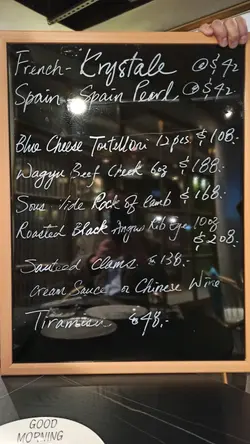 French - Krystale @ $42
Spain - Spain Pearl. @ $42.
Blue Cheese Tortelloni 12pcs $108.
Wagyu Beef Cheek 6oz $188.-
Sous Vide Rack of lamb $168.-
Roasted Black Angus Rib Eye 10oz
$208.-
Sauteed Clams $138.-
Cream Sauce or Chinese Wine
Tiramisu $48.-
GOOD
MORNING